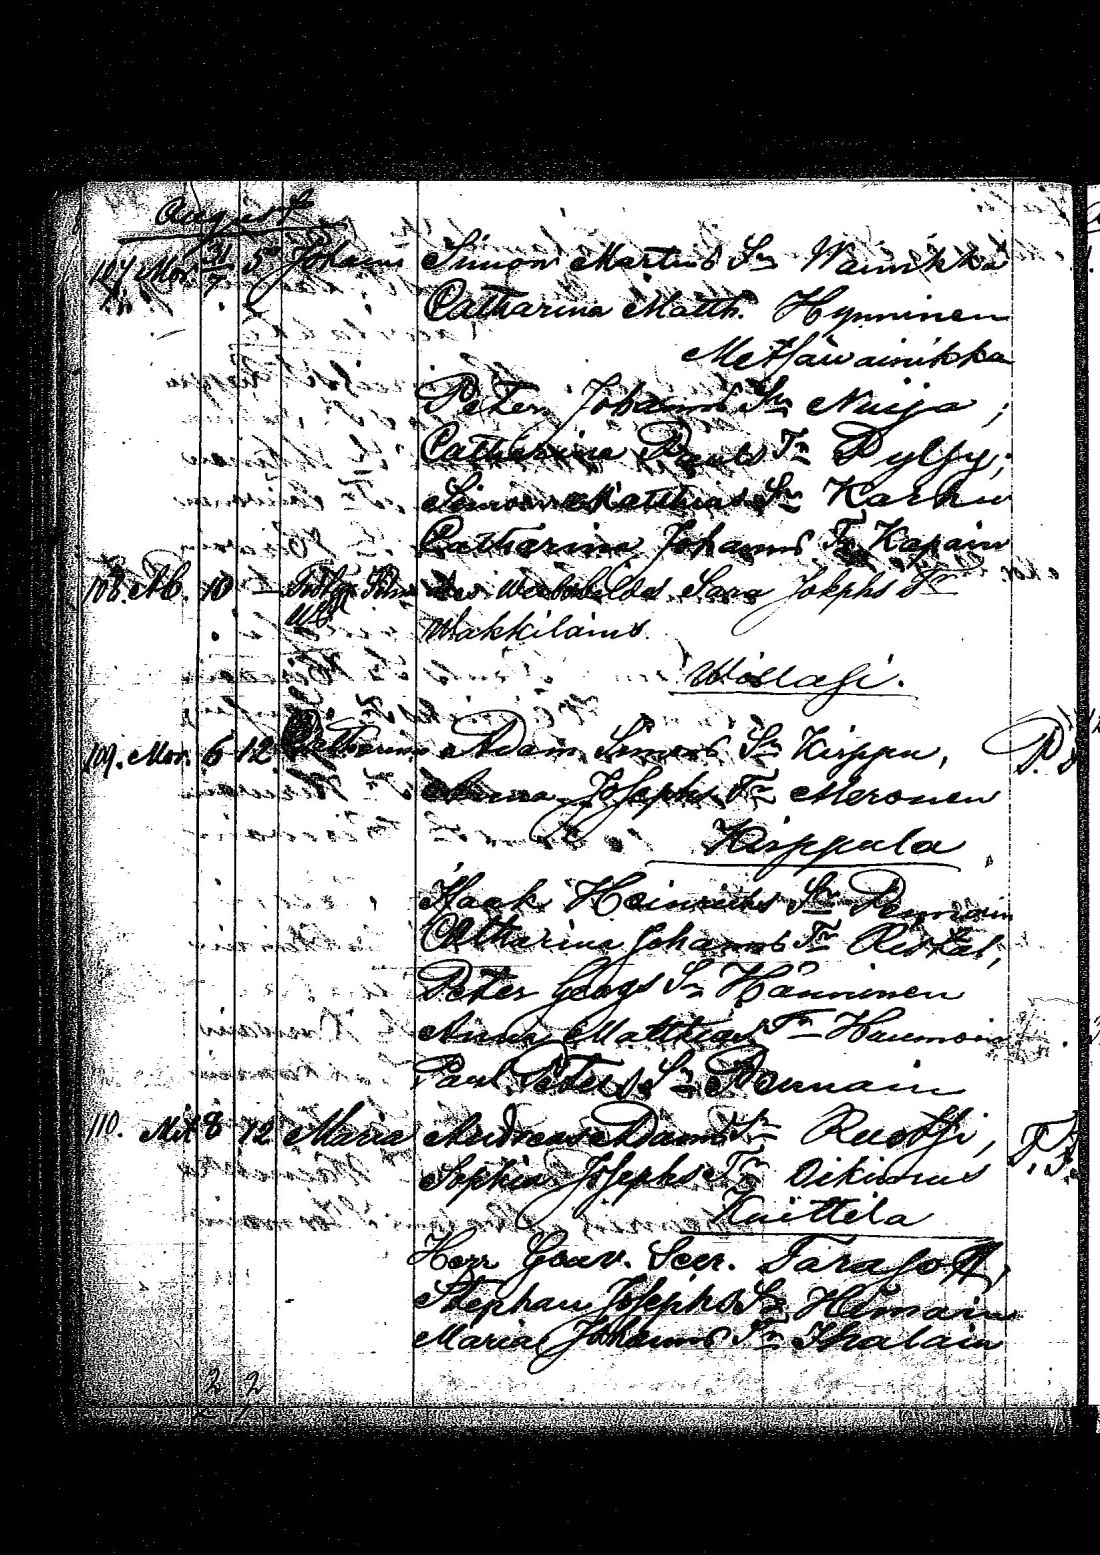 August
107. Mor. 31/7 5 Johann Simon Martins Sn Wainikka
Catharina Matth. Hynninen
Metsäwainikka
Peter Johanns Sn Nuija,
Catharina Pauls Tr Pylsy,
Simon Matthias Sn Karhu
Catharina Johanns Tr Kapain
108. Ab. 10 des Weibsbildes Sara Josephs Tr
Wakkilains
Wössasi.
109. Mor. 6 12 Catharina Adam Simons Sn Kirppu,
Anna Josephs Tr Meronen
Kirppula
Isaak Heinrichs Sn
Catharina Johanns Tr
Peter Georgs Sn Hänninen
Anna Matthias Tr
Paul Peters Sn
110. Mit 8 12 Maria Andreas Adams Sn Ruotsi,
Sophia Josephs Tr Oikimus
Kaittela
Herr Gouv. Secr. Tarasoff,
Stephan Josephs Sn Himain
Maria Johanns Tr Ihalain
2 2